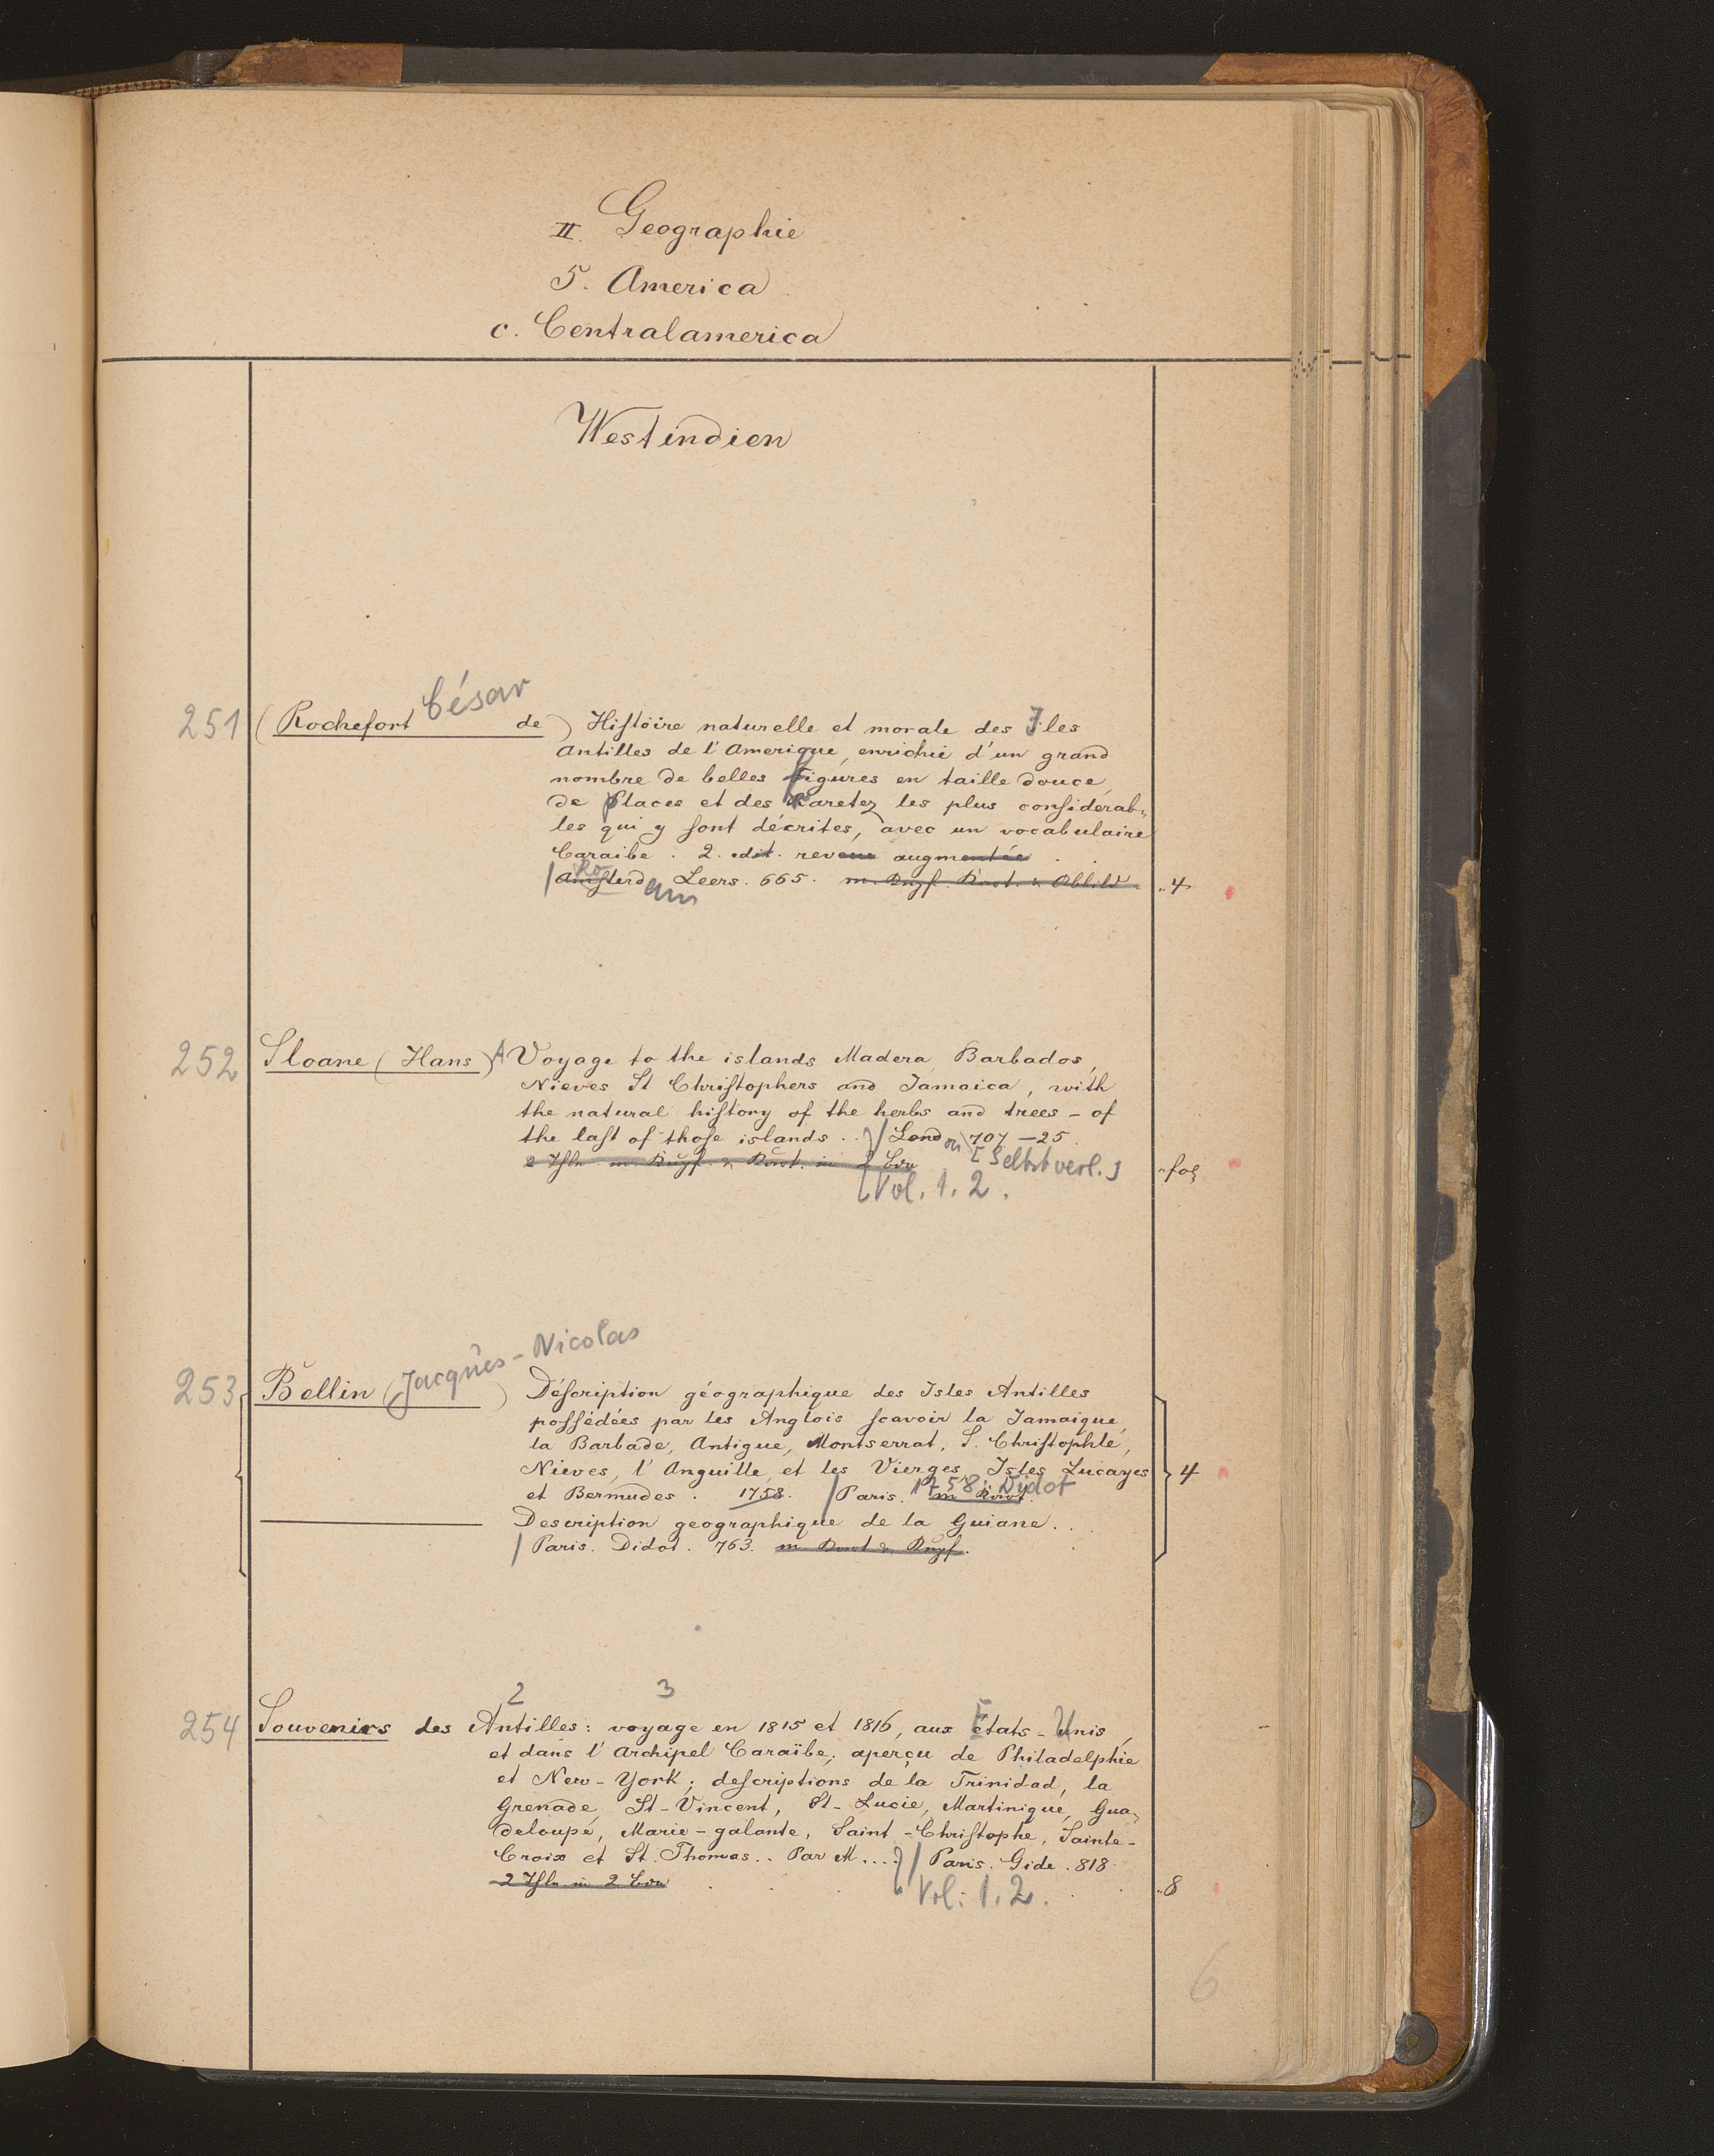 II. Geographie
5. America
c. Centralamerica
Westindien
251 (Rochefort César de) Hiſtoire naturelle et morale des Iles
Antilles de l'Amerique, enrichie d'un grand
nombre de belles figures en taille douce,
de places et des raretez les plus conſiderab„
les qui y ſont décrites, avec un vocabulaire
Caraibe. 2. edit. reveue augmentée
Ro
Amſterd am Leers. 665. m. Kupf. Kart. u. Abbild „4
252 Sloane (Hans) A Voyage to the islands Madera, Barbados,
Nieves St Chriſtophers and Jamaica, with
the natural hiſtory of the herbs and trees - of
the laſt of thoſe islands.. / London 707 - 25.
2 Thle m. Kupf. u. Kart. in 2 Bdn [Selbstverl.] „fol
Vol. 1. 2.
253 Bellin (Jacques-Nicolas) Déſcription géographique des Isles Antilles
poſſédées par les Anglois ſcavoir la Jamaique,
la Barbade, Antigue, Montserrat, S. Chriſtophle,
Nieves, l'Anguille, et les Vierges, Isles Lucayes 4
et Bermudes. 1758. / Paris. m Kart. 1758: Didot
Description geographique de la Guiane..
/ Paris. Didot. 763. m. Kart & Kupf.
2 3
254 Souvenirs des Antilles: voyage en 1815 et 1816, aux États-Unis,
et dans l'Archipel Caraïbe; aperçu de Philadelphie
et New-York; deſcriptions de la Trinidad, la
Grenade, St-Vincent, St-Lucie, Martinique, Gua„
deloupe, Marie-galante, Saint-Chriſtophe, Sainte-
Croix et St. Thomas.. Par M.... / Paris. Gide. 818.
2 Thle in 2 Bdn „8
Vol: 1. 2.
6